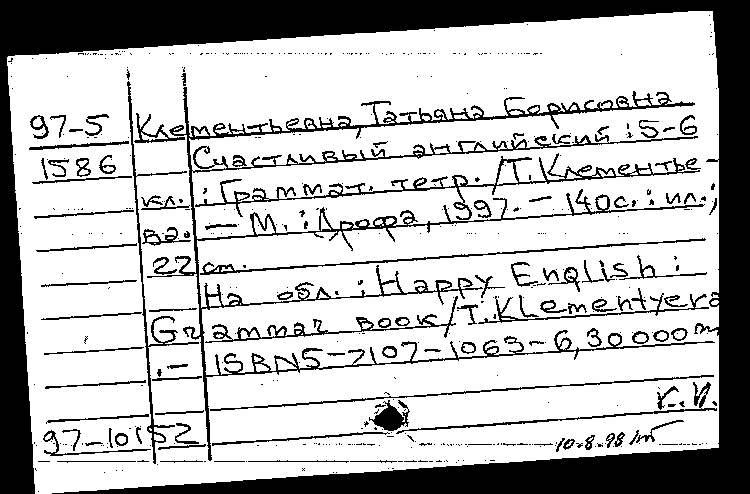 97-5 Клементьевна, Татьяна Борисовна.
1586 Счастливый английский : 5-6
кл. : Граммат. тетр. / Т. Клементье-
ва. — М. : Дрофа, 1997. — 140с. : ил.;
22 см.
На обл. : Happy English :
Grammar book / T. Klementyeva
.— ISBN 5-7107-1063-6, 30000
97-10152
10-8-98